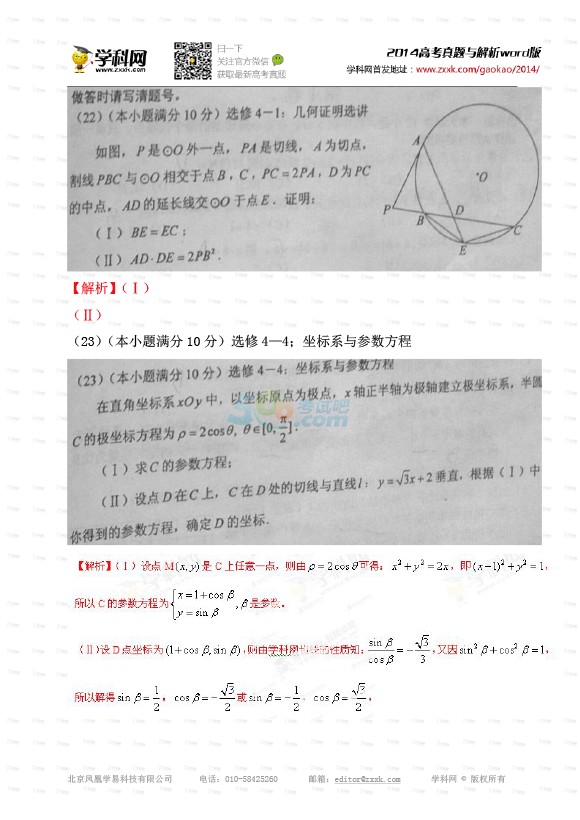 学科网
www.zxxk.com
扫一下
关注官方微信
获取最新高考真题
2014高考真题与解析word版
学科网首发地址：www.zxxk.com/gaokao/2014/
做答时请写清题号。
(22)（本小题满分 10 分）选修 4－1：几何证明选讲
如图，P 是⊙O 外一点，PA 是切线，A 为切点，
割线 PBC 与⊙O 相交于点 B，C，PC = 2PA，D 为 PC
的中点，AD 的延长线交⊙O 于点 E．证明：
（Ⅰ）BE = EC；
（Ⅱ）AD·DE = 2PB²．
A
O
P
B
D
C
E
【解析】（Ⅰ）
（Ⅱ）
（23）（本小题满分 10 分）选修 4—4；坐标系与参数方程
(23)（本小题满分 10 分）选修 4－4：坐标系与参数方程
在直角坐标系 xOy 中，以坐标原点为极点，x 轴正半轴为极轴建立极坐标系，半圆
C 的极坐标方程为 ρ = 2cosθ, θ∈[0, π/2]．
（Ⅰ）求 C 的参数方程；
（Ⅱ）设点 D 在 C 上，C 在 D 处的切线与直线 l：y = √3x + 2 垂直，根据（Ⅰ）中
你得到的参数方程，确定 D 的坐标．
【解析】（Ⅰ）设点 M(x, y) 是 C 上任意一点，则由 ρ = 2cosθ 可得：x² + y² = 2x，即 (x－1)² + y² = 1，
所以 C 的参数方程为 {x = 1 + cos β y = sin β , β 是参数。
（Ⅱ）设 D 点坐标为 (1 + cos β, sin β)，则由学科网切线的性质知：sin β/cos β = －√3/3，又因 sin² β + cos² β = 1，
所以解得 sin β = 1/2，cos β = －√3/2 或 sin β = －1/2，cos β = √3/2，
北京凤凰学易科技有限公司 电话：010-58425260 邮箱：editor@zxxk.com 学科网 © 版权所有